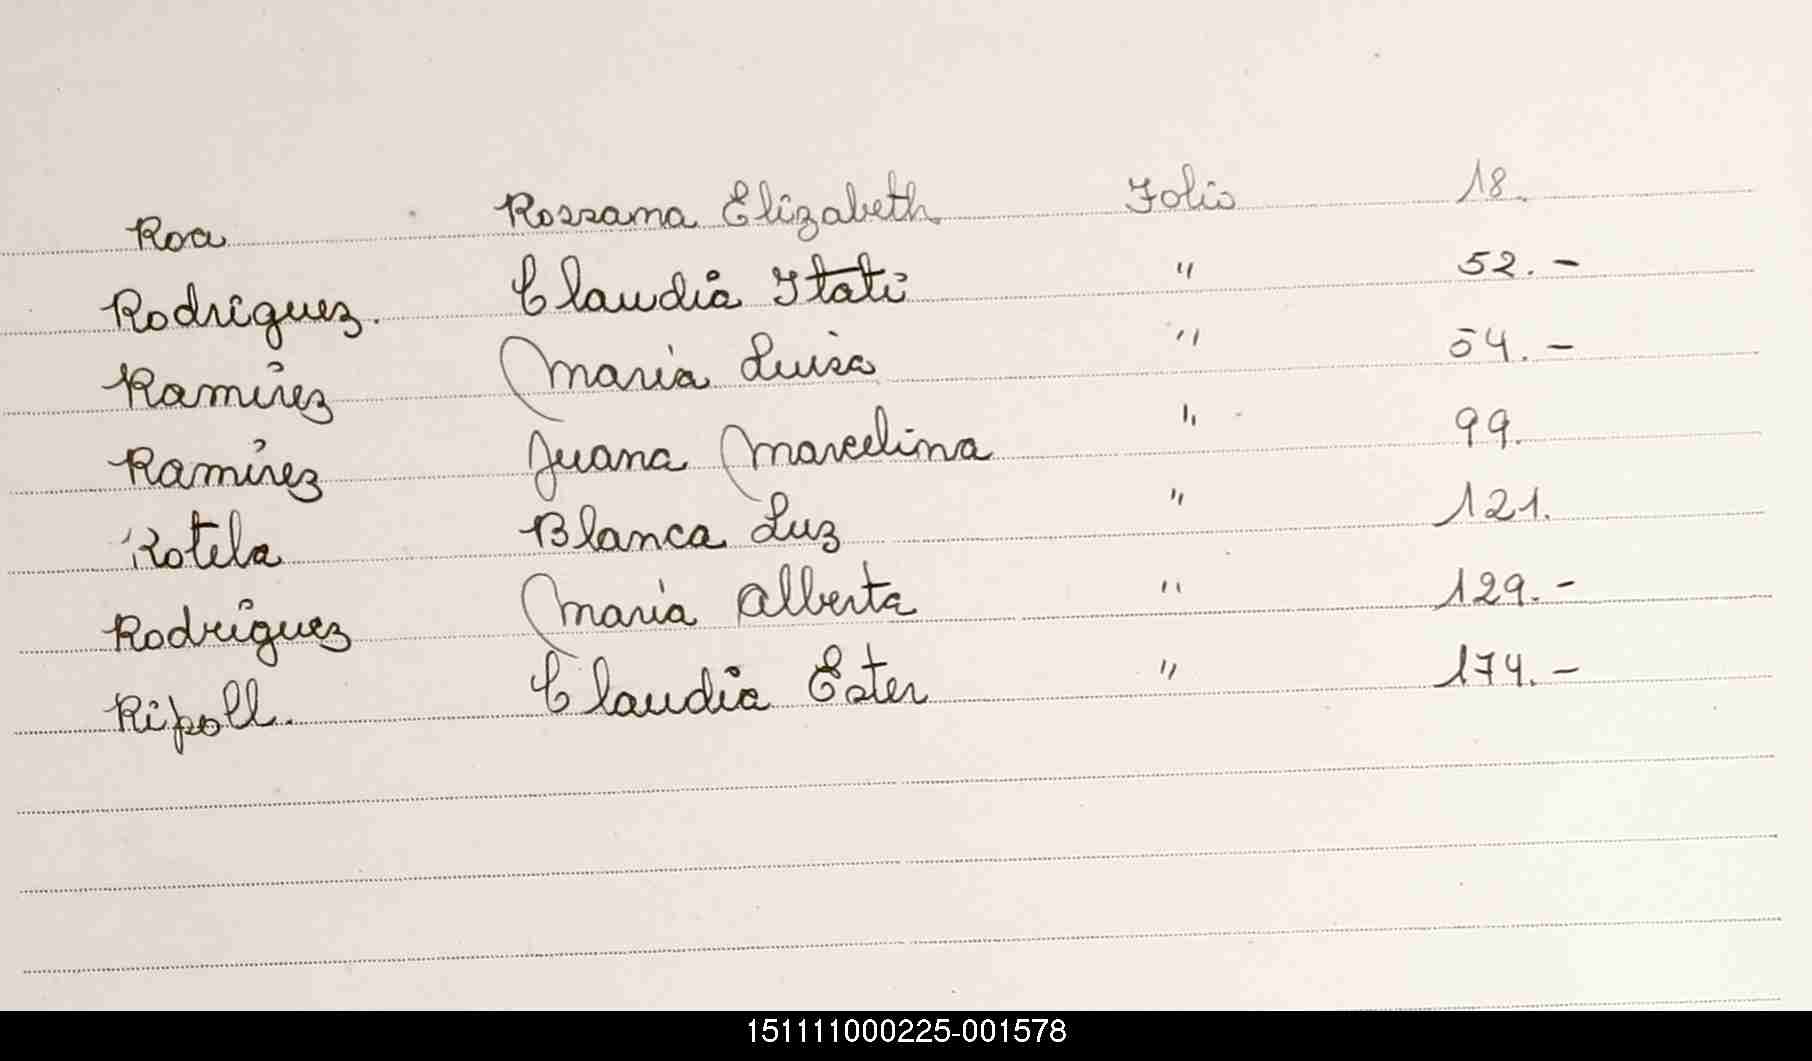 Roa Rossana Elizabeth Folio 18.
Rodríguez. Claudia Itatí " 52.-
Ramírez María Luisa " 54.-
Ramírez Juana Marcelina " 99.
Rotela Blanca Luz " 121.
Rodríguez María Alberta " 129.-
Ripoll. Claudia Ester " 174.-
151111000225-001578